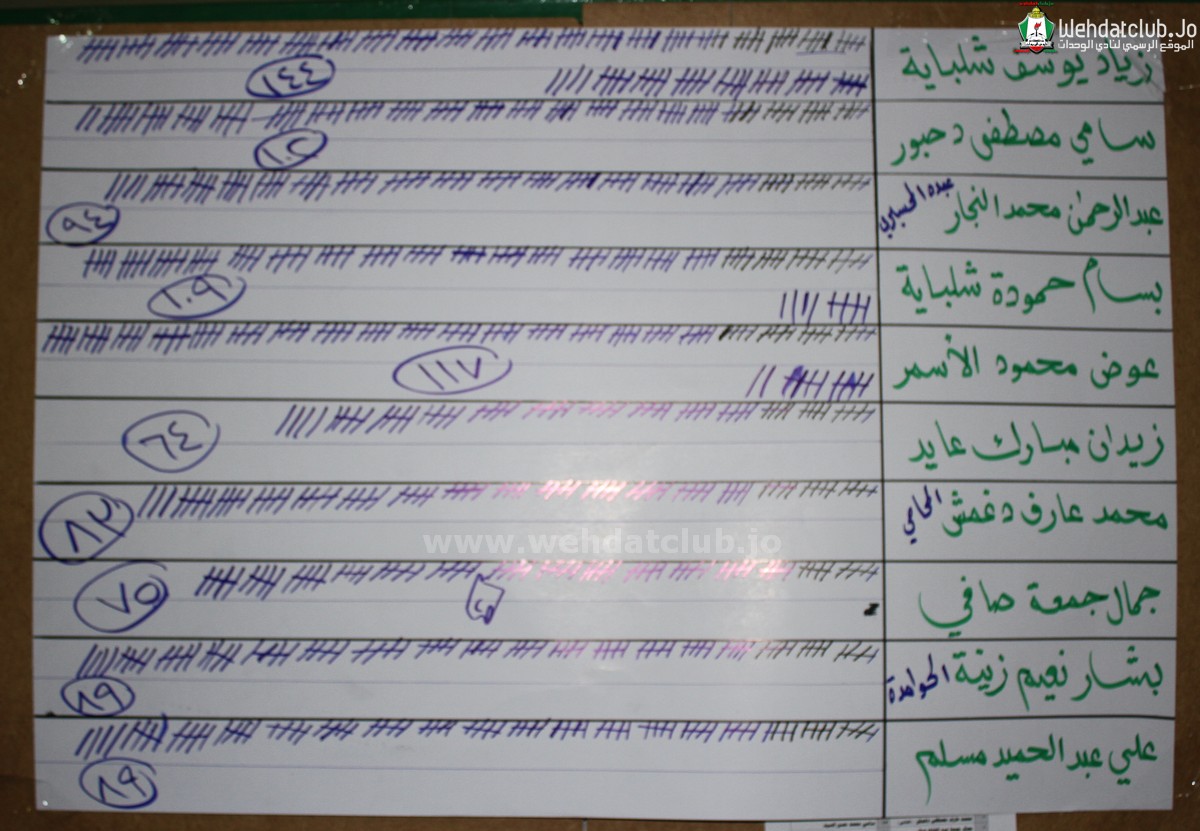 Wehdatclub.Jo
الموقع الرسمي لنادي الوحدات
زياد يوسف شلباية
١٤٤
سامي مصطفى دحبور
١٠٢
عبدالرحمن محمد النجار
٩٤
بسام حمودة شلباية
١٠٩
عوض محمود الأسمر
١١٧
زيدان مبارك عايد
٦٤
محمد عارف دغمش المحامي
٨٣
www.wehdatclub.jo
جمال جمعة صافي
٧٥
بشار نعيم زينة الحوامدة
٨٩
علي عبد الحميد مسلم
٨٩